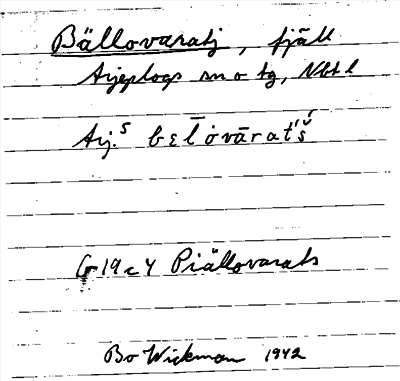 Bällovaratj, fjäll
Arjeplogs sn o tg, Nbt l
Arj.ˢ bɛl̄ɷ̇vāratš́
G 19 c 4 Piällovarats
Bo Wickman 1942